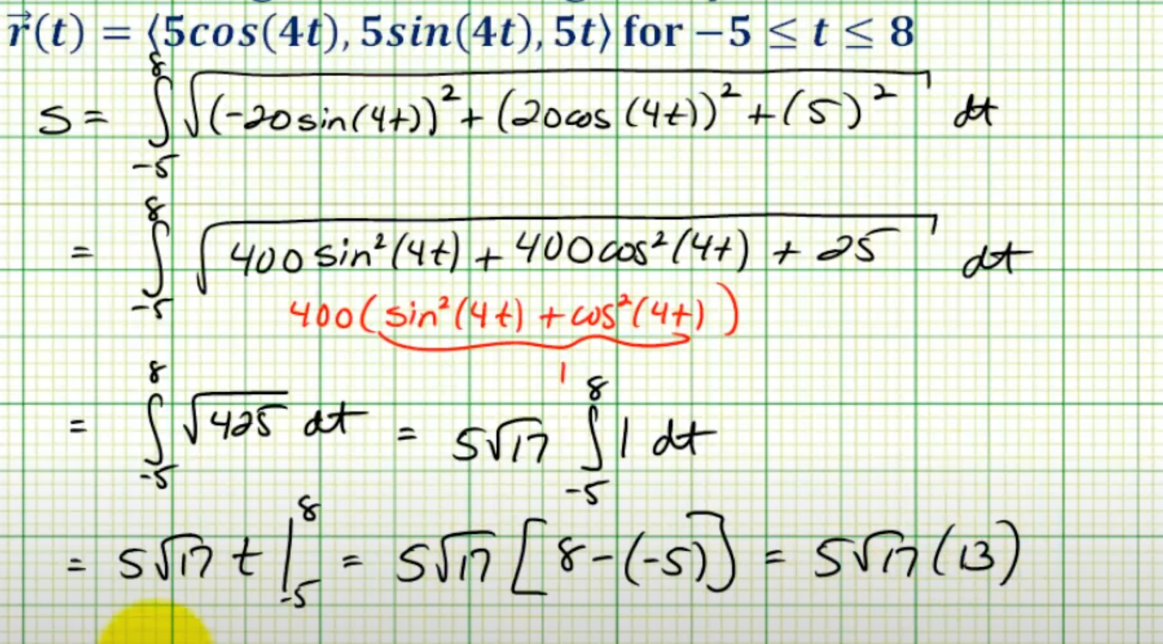 r⃗(t) = ⟨5cos(4t), 5sin(4t), 5t⟩ for −5 ≤ t ≤ 8
S = ∫₋₅⁸ √((-20sin(4t))² + (20cos(4t))² + (5)²) dt
= ∫₋₅⁸ √(400 sin²(4t) + 400cos²(4t) + 25) dt
400(sin²(4t) + cos²(4t))
1
= ∫₋₅⁸ √425 dt = 5√17 ∫₋₅⁸ 1 dt
= 5√17 t |₋₅⁸ = 5√17 [8-(-5)] = 5√17 (13)